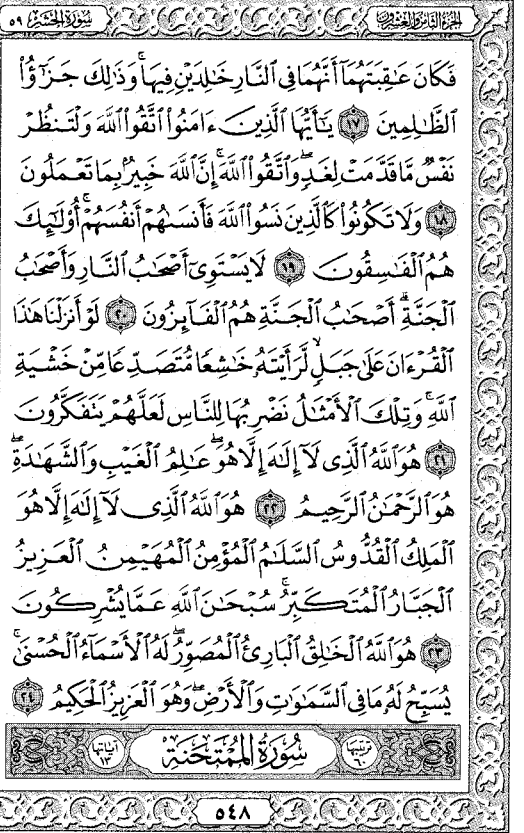 الجزء الثامن والعشرون سورة الحشر ٥٩
فَكَانَ عَٰقِبَتَهُمَآ أَنَّهُمَا فِى ٱلنَّارِ خَٰلِدَيْنِ فِيهَا ۚ وَذَٰلِكَ جَزَٰٓؤُا۟
ٱلظَّٰلِمِينَ ١٧ يَٰٓأَيُّهَا ٱلَّذِينَ ءَامَنُوا۟ ٱتَّقُوا۟ ٱللَّهَ وَلْتَنظُرْ
نَفْسٌ مَّا قَدَّمَتْ لِغَدٍ ۖ وَٱتَّقُوا۟ ٱللَّهَ ۚ إِنَّ ٱللَّهَ خَبِيرٌۢ بِمَا تَعْمَلُونَ
١٨ وَلَا تَكُونُوا۟ كَٱلَّذِينَ نَسُوا۟ ٱللَّهَ فَأَنسَىٰهُمْ أَنفُسَهُمْ ۚ أُو۟لَٰٓئِكَ
هُمُ ٱلْفَٰسِقُونَ ١٩ لَا يَسْتَوِىٓ أَصْحَٰبُ ٱلنَّارِ وَأَصْحَٰبُ
ٱلْجَنَّةِ ۚ أَصْحَٰبُ ٱلْجَنَّةِ هُمُ ٱلْفَآئِزُونَ ٢٠ لَوْ أَنزَلْنَا هَٰذَا
ٱلْقُرْءَانَ عَلَىٰ جَبَلٍ لَّرَأَيْتَهُۥ خَٰشِعًا مُّتَصَدِّعًا مِّنْ خَشْيَةِ
ٱللَّهِ ۚ وَتِلْكَ ٱلْأَمْثَٰلُ نَضْرِبُهَا لِلنَّاسِ لَعَلَّهُمْ يَتَفَكَّرُونَ
٢١ هُوَ ٱللَّهُ ٱلَّذِى لَآ إِلَٰهَ إِلَّا هُوَ ۖ عَٰلِمُ ٱلْغَيْبِ وَٱلشَّهَٰدَةِ ۖ
هُوَ ٱلرَّحْمَٰنُ ٱلرَّحِيمُ ٢٢ هُوَ ٱللَّهُ ٱلَّذِى لَآ إِلَٰهَ إِلَّا هُوَ
ٱلْمَلِكُ ٱلْقُدُّوسُ ٱلسَّلَٰمُ ٱلْمُؤْمِنُ ٱلْمُهَيْمِنُ ٱلْعَزِيزُ
ٱلْجَبَّارُ ٱلْمُتَكَبِّرُ ۚ سُبْحَٰنَ ٱللَّهِ عَمَّا يُشْرِكُونَ
٢٣ هُوَ ٱللَّهُ ٱلْخَٰلِقُ ٱلْبَارِئُ ٱلْمُصَوِّرُ ۖ لَهُ ٱلْأَسْمَآءُ ٱلْحُسْنَىٰ ۚ
يُسَبِّحُ لَهُۥ مَا فِى ٱلسَّمَٰوَٰتِ وَٱلْأَرْضِ ۖ وَهُوَ ٱلْعَزِيزُ ٱلْحَكِيمُ ٢٤
ترتيبها ٦٠ سُورَةُ المُمْتَحَنَةِ آياتها ١٣
٥٤٨